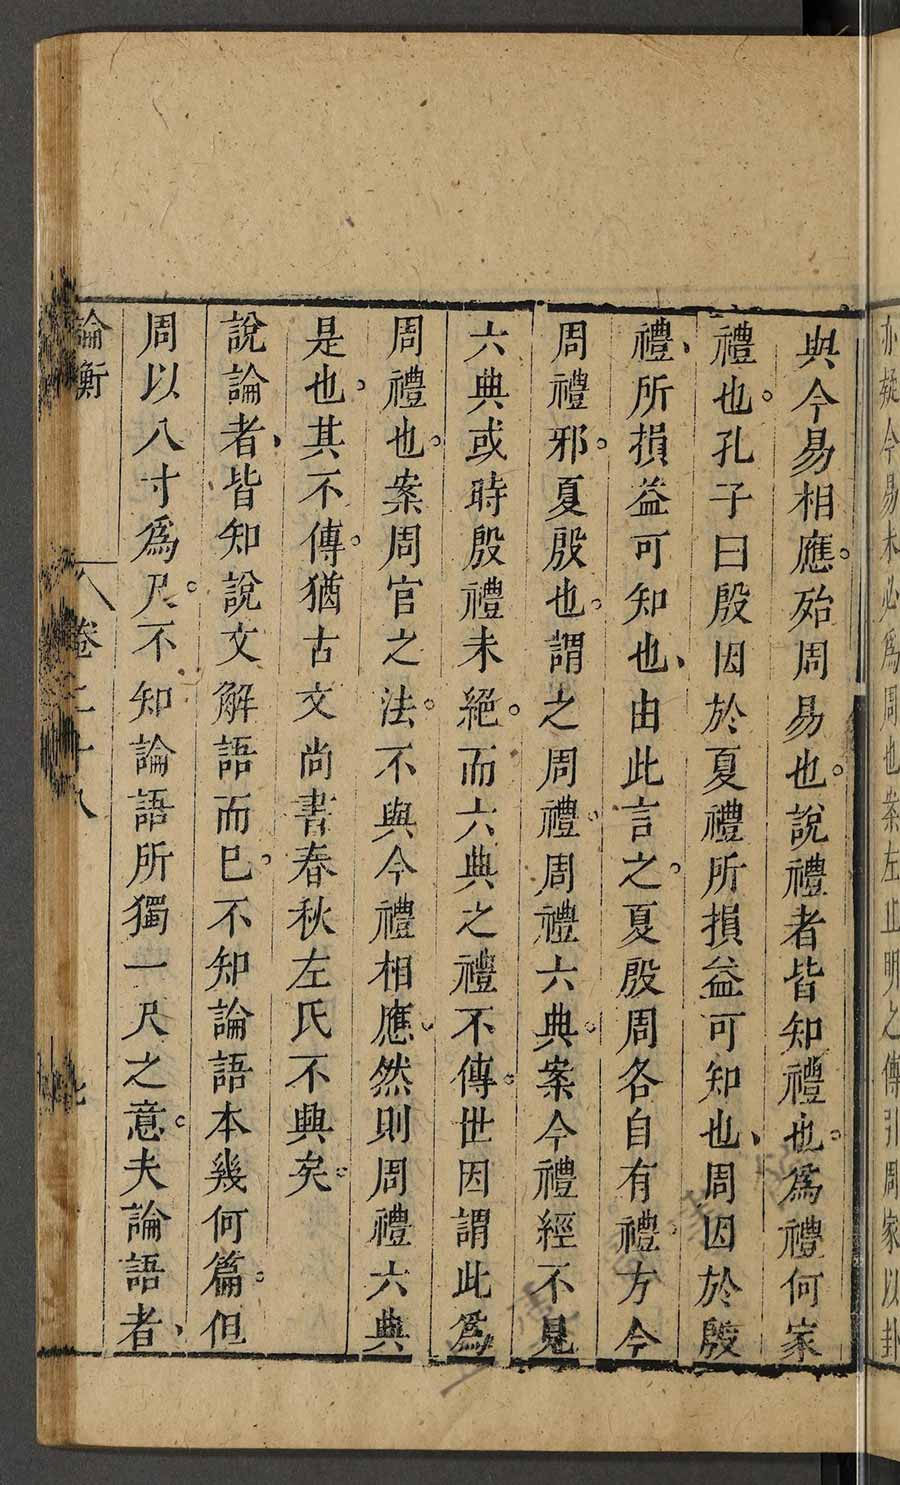 亦疑今易未必爲周也案左丘明之傳引周家以卦
與今易相應。殆周易也。說禮者皆知禮也。爲禮何家
禮也。孔子曰殷因於夏禮所損益可知也、周因於殷
禮、所損益可知也、由此言之。夏殷周各自有禮。方今
周禮邪。夏殷也。謂之周禮。周禮六典。案今禮經不見
六典或時殷禮未絕。而六典之禮不傳。世因謂此爲
周禮也。案周官之法。不與今禮相應、然則周禮六典
是也、其不傳。猶古文尚書春秋左氏不興矣。
說論者、皆知說文解語而已。不知論語本幾何篇。但
周以八寸爲尺。不知論語所獨一尺之意。夫論語者、
論衡
卷二十八